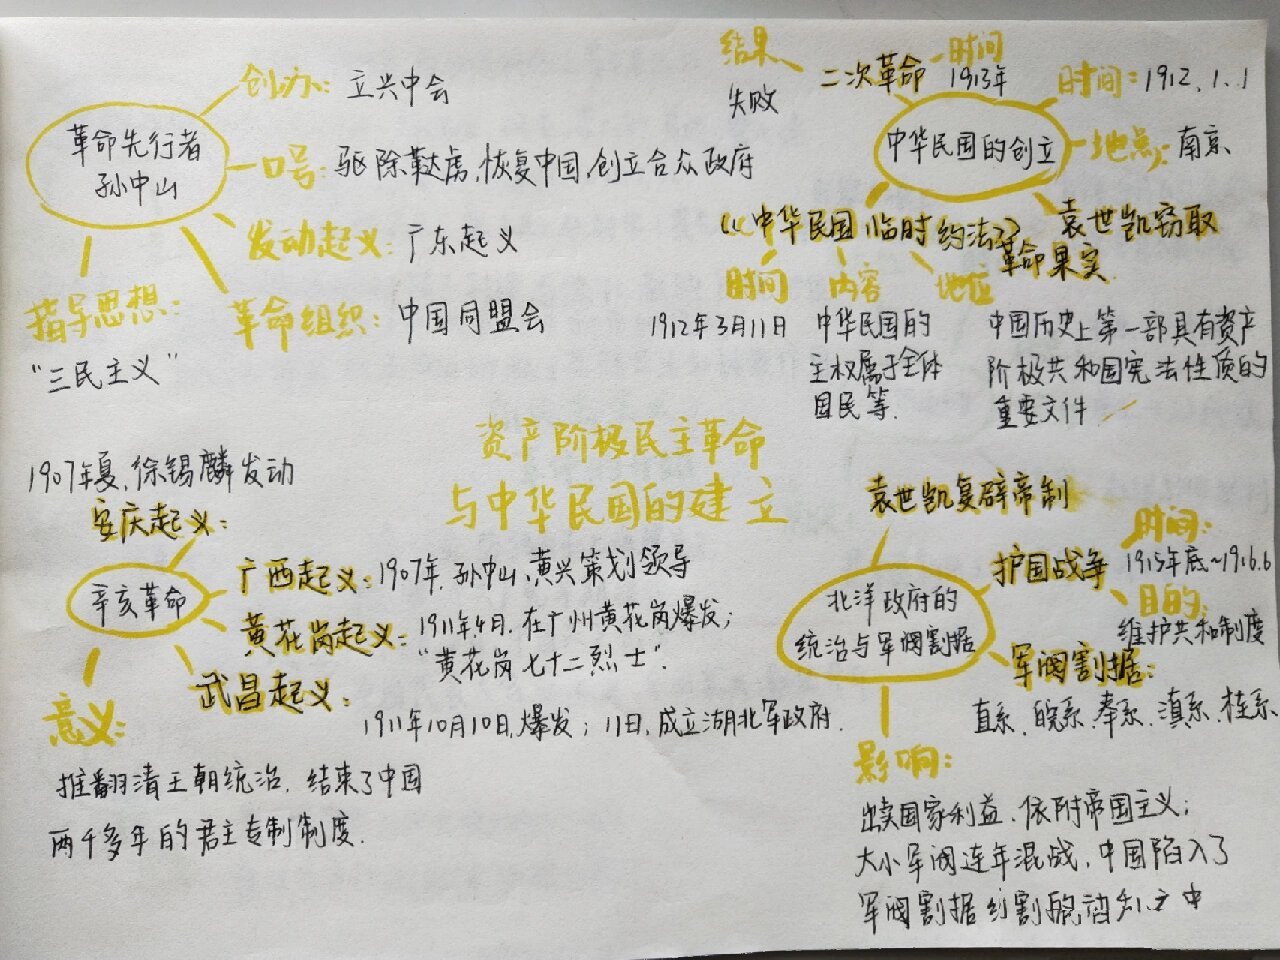 创办：立兴中会
革命先行者
孙中山
口号：驱除鞑虏，恢复中国，创立合众政府
发动起义：广东起义
革命组织：中国同盟会
指导思想：
“三民主义”
结果
失败
二次革命
时间
1913年
时间：1912.1.1
中华民国的创立
地点：南京
《中华民国临时约法》
袁世凯窃取
革命果实
时间
内容
地位
1912年3月11日
中华民国的
主权属于全体
国民等.
中国历史上第一部具有资产
阶极共和国宪法性质的
重要文件
资产阶极民主革命
与中华民国的建立
1907年夏，徐锡麟发动
安庆起义：
辛亥革命
广西起义：1907年，孙中山、黄兴策划领导
黄花岗起义：1911年4月，在广州黄花岗爆发；
“黄花岗七十二烈士”.
武昌起义：
1911年10月10日，爆发；11日，成立湖北军政府.
意义：
推翻清王朝统治，结束了中国
两千多年的君主专制制度.
袁世凯复辟帝制
北洋政府的
统治与军阀割据
护国战争
时间：
1915年底~1916.6
目的：
维护共和制度
军阀割据：
直系、皖系、奉系、滇系、桂系
影响：
出卖国家利益、依附帝国主义；
大小军阀连年混战，中国陷入了
军阀割据
中